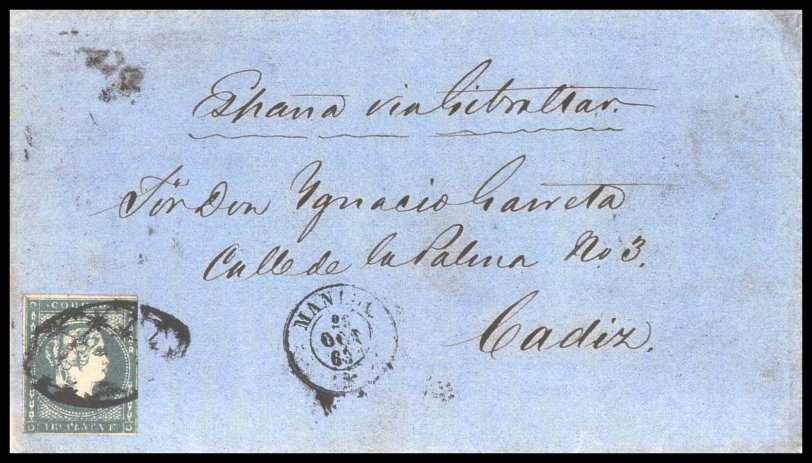 España via Gibraltar.
Sōr Don Ygnacio Garreta
Calle de la Palma No 3.
Cadiz.
MANILA
OCT
63
CORREOS
1 Rl PLATA F.